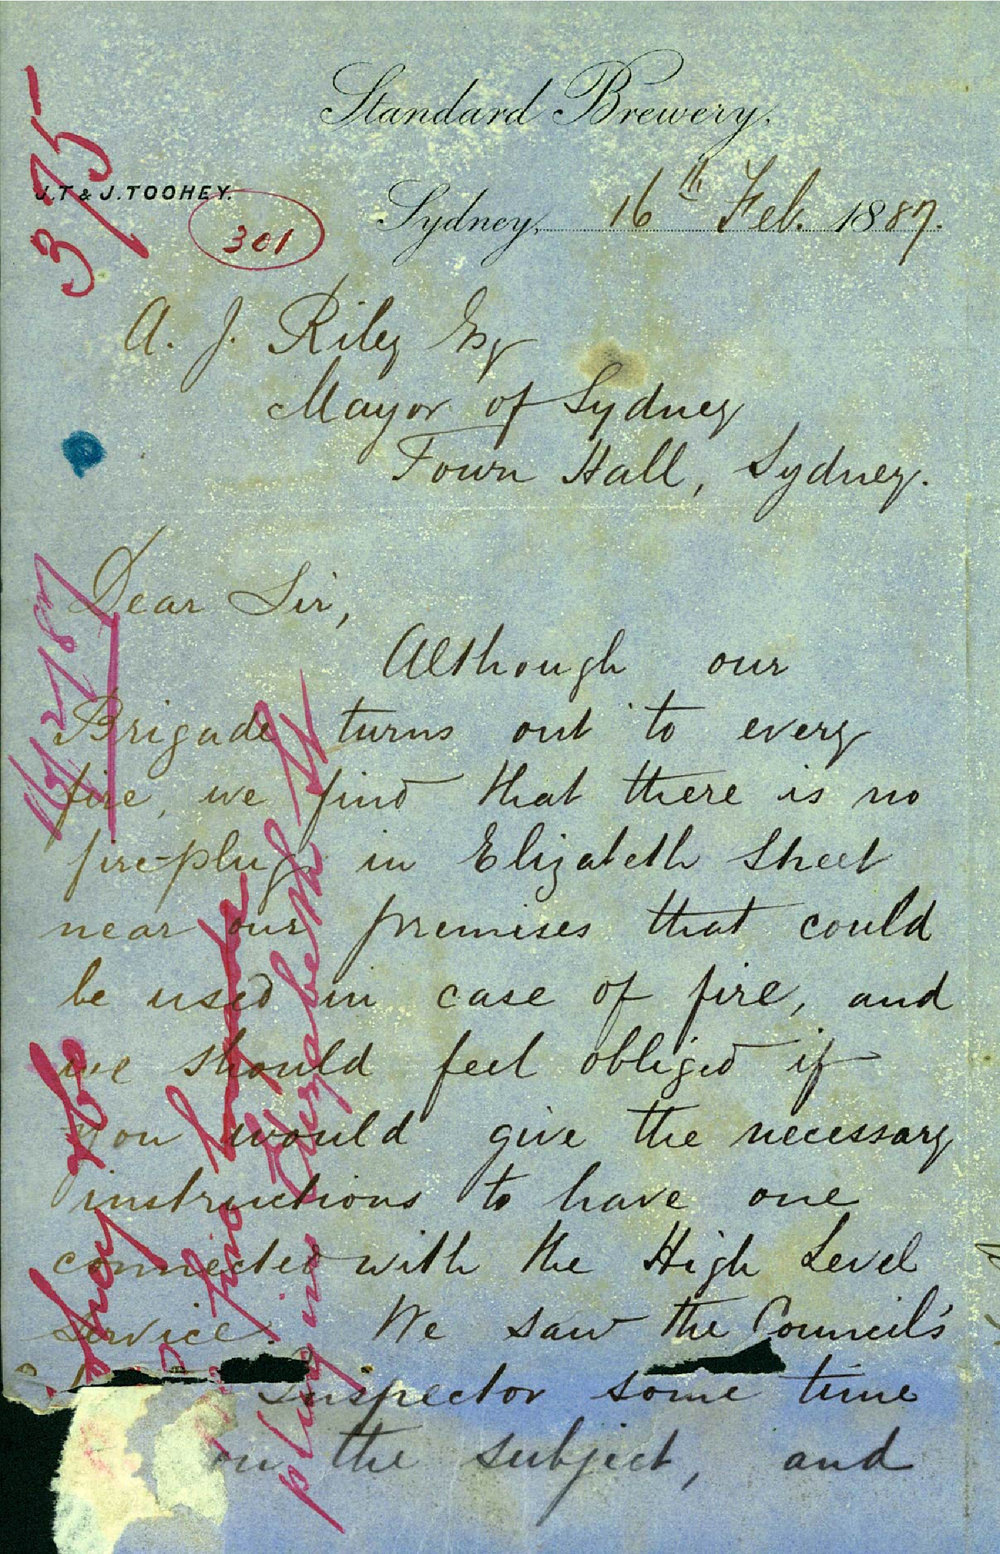 Standard Brewery.
J.T & J. TOOHEY.
Sydney, 16th Feb. 1887.
375
301
A. J. Riley Esq
Mayor of Sydney
Town Hall, Sydney.
Dear Sir,
Although our
Brigade turns out to every
fire, we find that there is no
fire-plug in Elizabeth Street
near our premises that could
be used in case of fire, and
we should feel obliged if
you would give the necessary
instructions to have one
connected with the High Level
service. We saw the Council's
Inspector some time
on the subject, and
16/2/87
plug in Elizabeth St